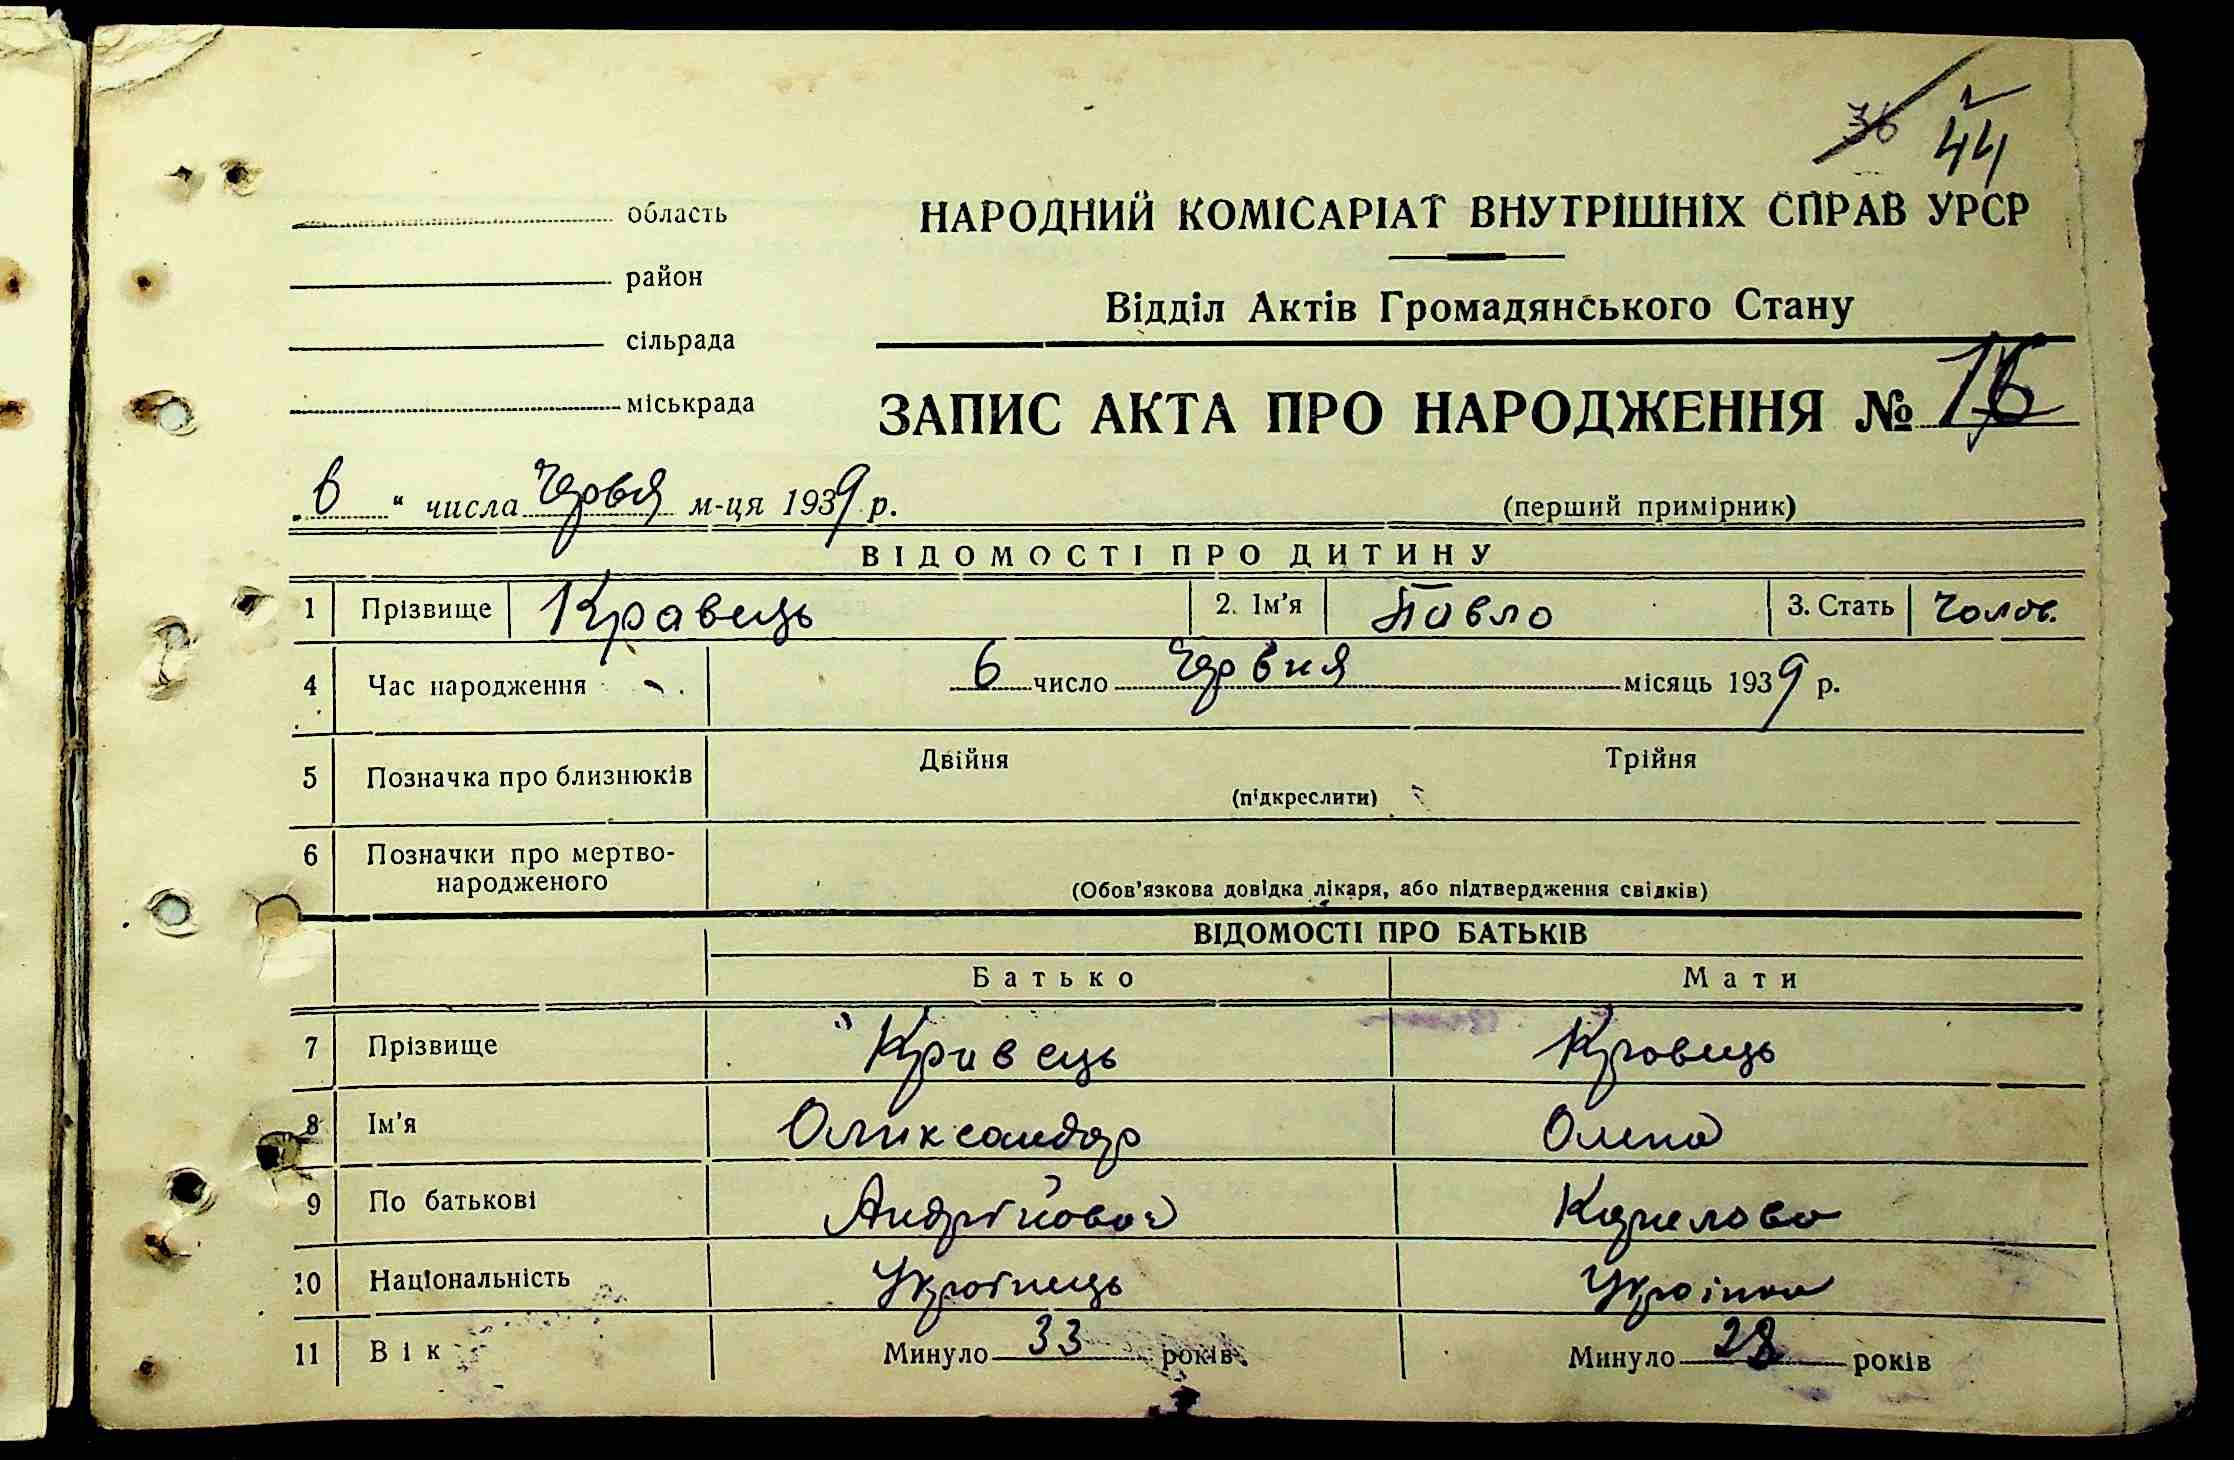 36 44
область
НАРОДНИЙ КОМІСАРІАТ ВНУТРІШНІХ СПРАВ УРСР
район
Відділ Актів Громадянського Стану
сільрада
міськрада
ЗАПИС АКТА ПРО НАРОДЖЕННЯ №
„6“ числа м-ця 1939 р.
(перший примірник)
ВІДОМОСТІ ПРО ДИТИНУ
1 Прізвище Кравець 2. Ім'я Павло 3. Стать Чолов.
4 Час народження 6 число Червня місяць 1939 р.
5 Позначка про близнюків Двійня Трійня
(підкреслити)
6 Позначки про мертво-
народженого
(Обов'язкова довідка лікаря, або підтвердження свідків)
ВІДОМОСТІ ПРО БАТЬКІВ
Батько Мати
7 Прізвище Кравець Кравець
8 Ім'я Олександр Олена
9 По батькові Андрійович
10 Національність Українець Українка
11 Вік Минуло 33 років. Минуло 28 років